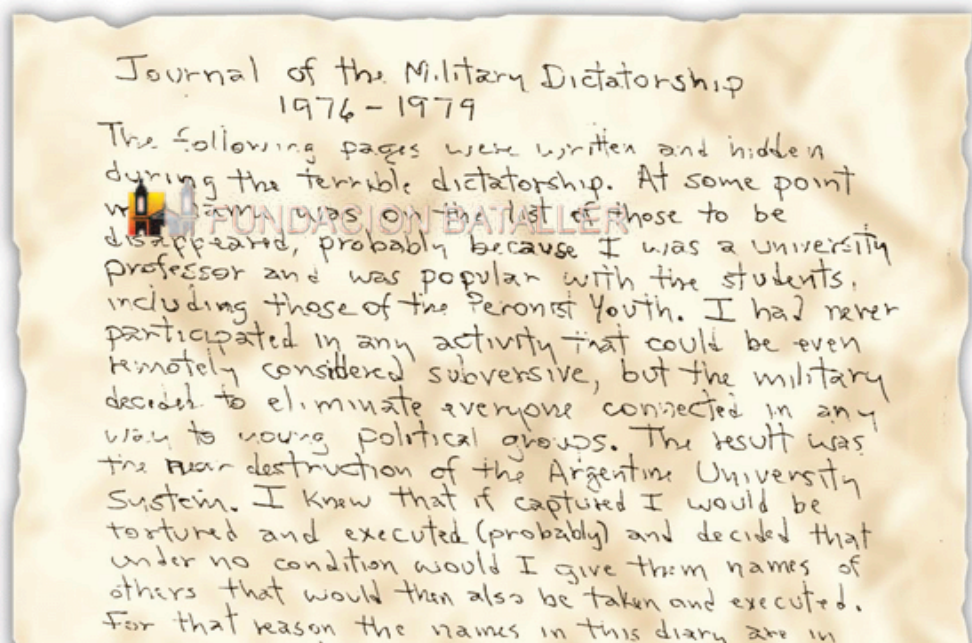 Journal of the Military Dictatorship
1976 - 1979
The following pages were written and hidden
during the terrible dictatorship. At some point
my name was on the list of those to be
FUNDACION BATALLER
disappeared, probably because I was a university
professor and was popular with the students,
including those of the Peronist Youth. I had never
participated in any activity that could be even
remotely considered subversive, but the military
decided to eliminate everyone connected in any
way to young political groups. The result was
the near destruction of the Argentine University
System. I knew that if captured I would be
tortured and executed (probably) and decided that
under no condition would I give them names of
others that would then also be taken and executed.
For that reason the names in this diary are in